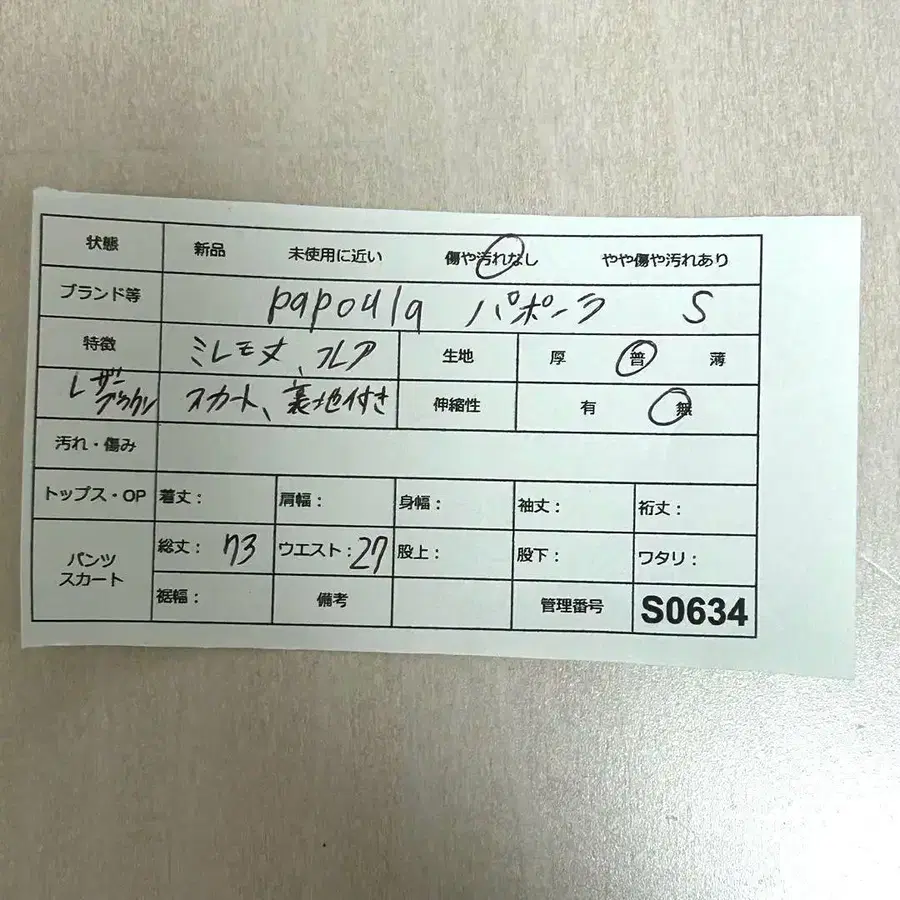 状態 新品 未使用に近い 傷や汚れなし やや傷や汚れあり
ブランド等 papoula パポーラ S
特徴 ミレモ丈、フレア 生地 厚 普 薄
レザー ブラウン スカート、裏地付き 伸縮性 有 無
汚れ・傷み
トップス・OP 着丈: 肩幅: 身幅: 袖丈: 裄丈:
パンツ スカート 総丈: 73 ウエスト: 27 股上: 股下: ワタリ:
裾幅: 備考 管理番号 S0634